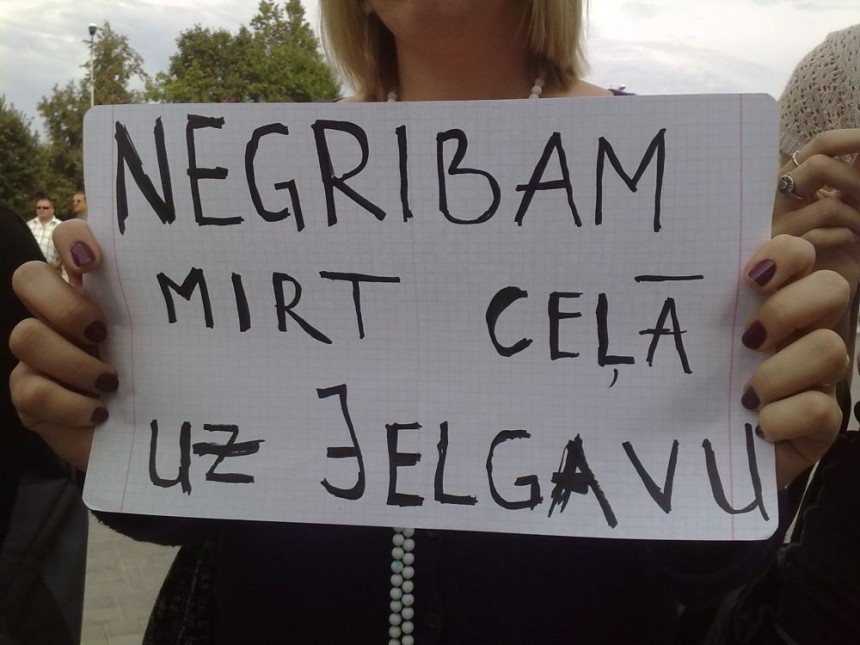 NEGRIBAM
MIRT CEĻĀ
UZ JELGAVU